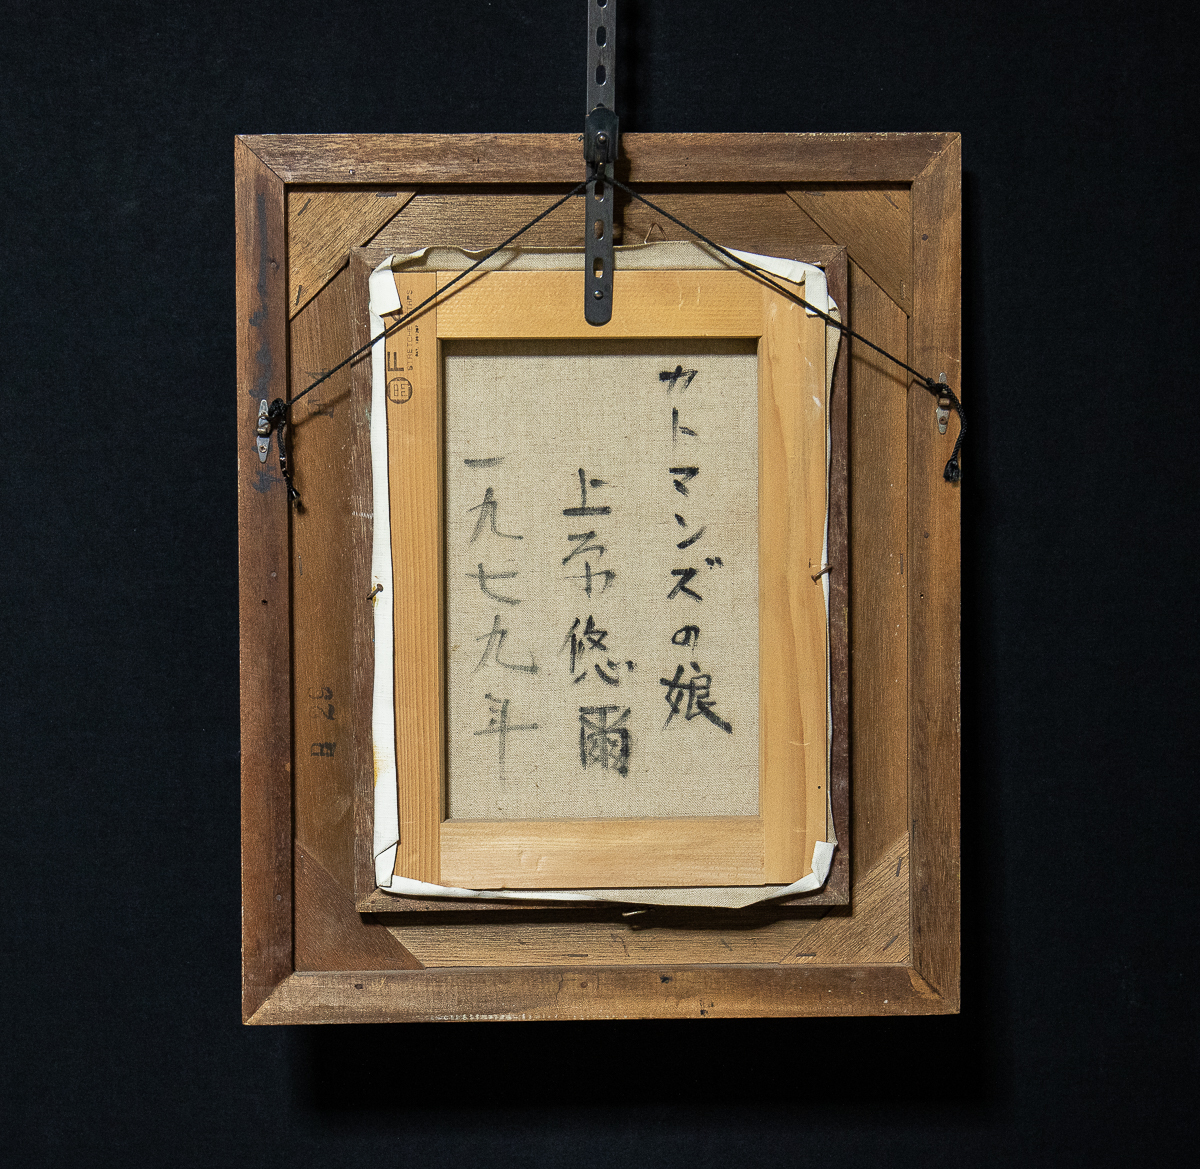 カトマンズの娘
上 悠爾
一九七九年
F